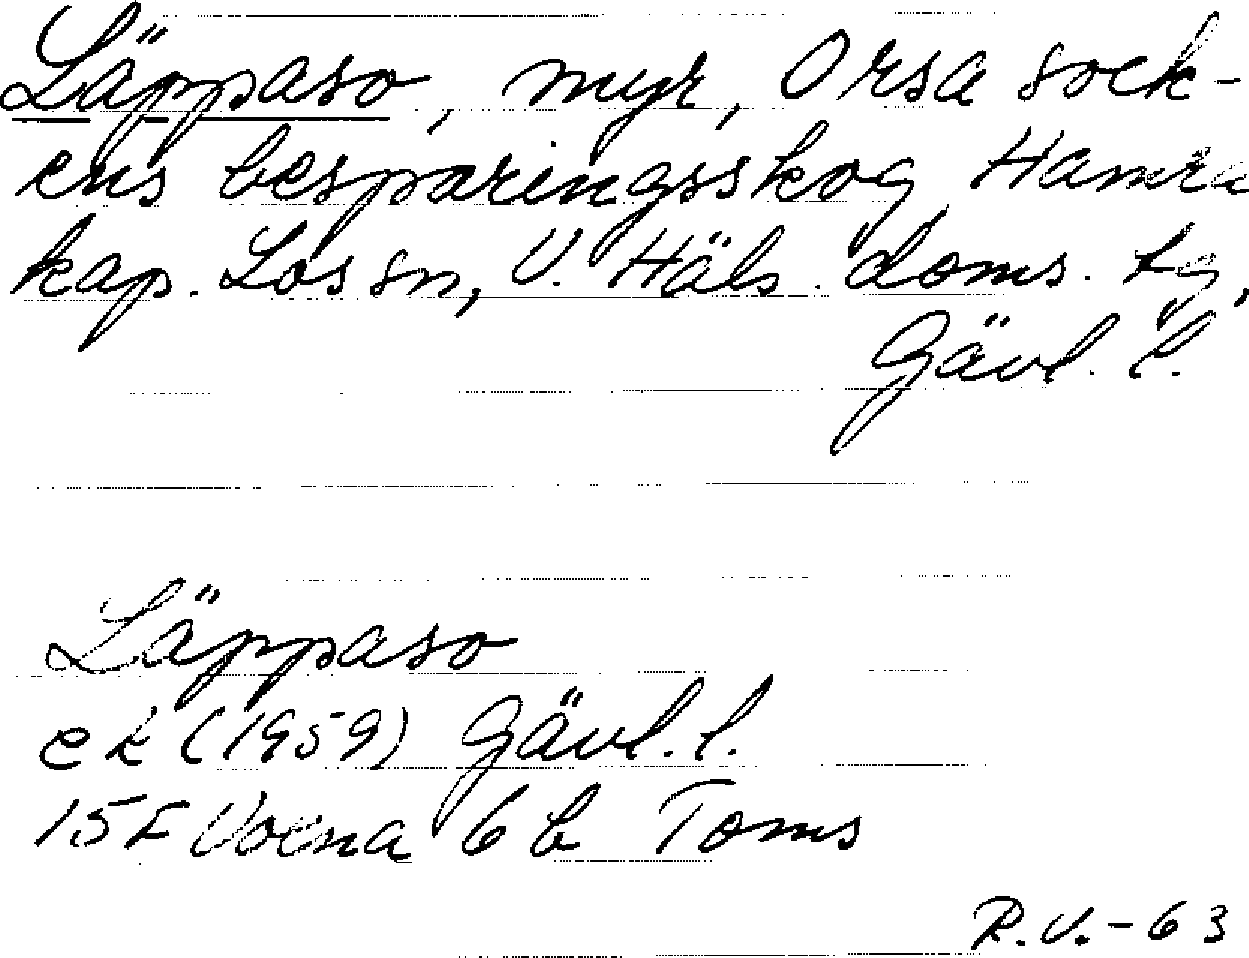 Läppaso, myr, Orsa sock-
ens besparingsskog, Hamra
kap. Los sn, V. Häls. doms. tg,
Gävl. l.
Läppaso
ek (1959) Gävl. l.
15F Voxna 6b Toms
R.V.-63